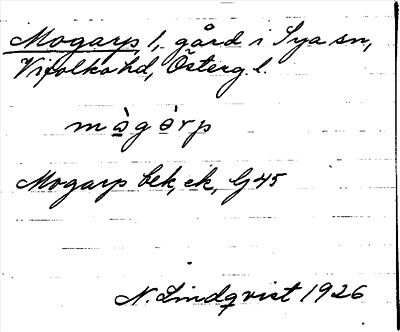 Mogarp, l, gård i Sya sn,
Vifolka hd, Österg. l.
mògàrp
Mogarp bek, ek, G45
N. Lindqvist 1926